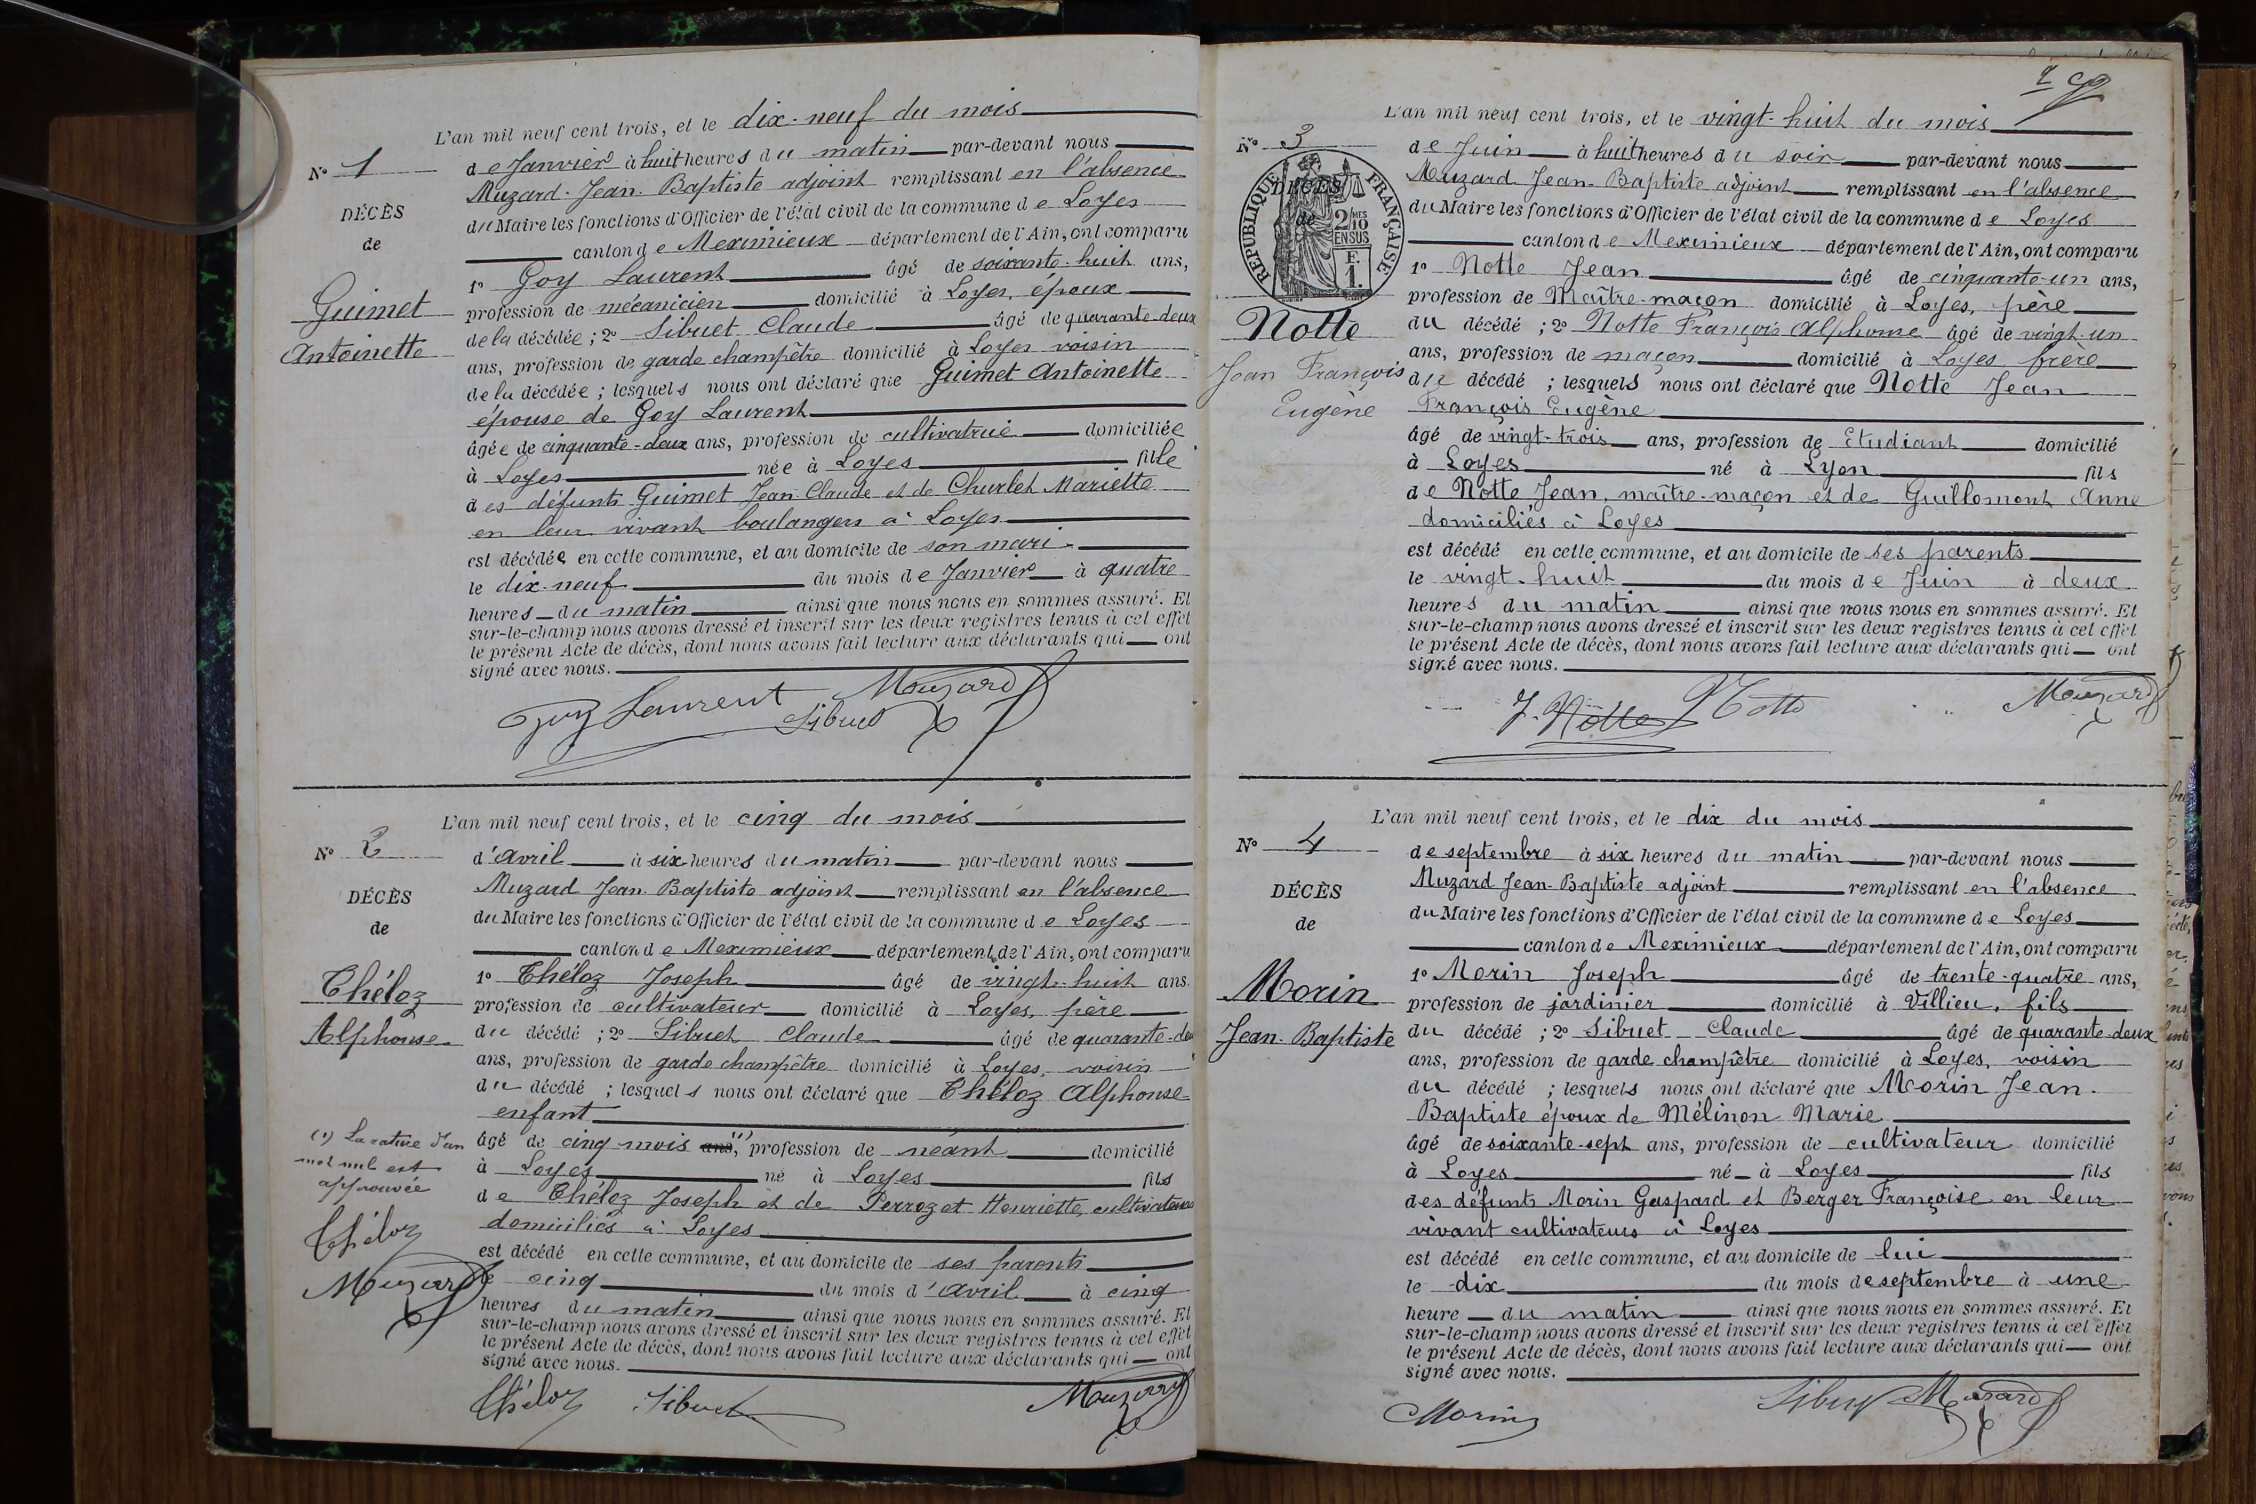 L'an mil neuf cent trois, et le dix-neuf du mois
N° 1
de Janvier à huit heures du matin par-devant nous
Muzard Jean-Baptiste adjoint remplissant en l'absence
DÉCÈS
du Maire les fonctions d'Officier de l'état civil de la commune de Loyes
de
canton de Meximieux département de l'Ain, ont comparu
1° Goy Laurent âgé de soixante-huit ans,
Guimet
profession de mécanicien domicilié à Loyes, époux
Antoinette
de la décédée ; 2° Sibuet Claude âgé de quarante-deux
ans, profession de garde champêtre domicilié à Loyes voisin
de la décédée ; lesquels nous ont déclaré que Guimet Antoinette
épouse de Goy Laurent
âgée de cinquante-deux ans, profession de cultivatrice domiciliée
à Loyes née à Loyes fille
des défunts Guimet Jean-Claude et de Churlet Mariette
en leur vivant boulangers à Loyes
est décédée en cette commune, et au domicile de son mari
le dix-neuf du mois de Janvier à quatre
heures du matin ainsi que nous nous en sommes assuré. Et
sur-le-champ nous avons dressé et inscrit sur les deux registres tenus à cet effet
le présent Acte de décès, dont nous avons fait lecture aux déclarants qui ont
signé avec nous.
Goy Laurent Sibuet Muzard
L'an mil neuf cent trois, et le cinq du mois
N° 2
d'Avril à six heures du matin par-devant nous
Muzard Jean-Baptiste adjoint remplissant en l'absence
DÉCÈS
du Maire les fonctions d'Officier de l'état civil de la commune de Loyes
de
canton de Meximieux département de l'Ain, ont comparu
1° Théloz Joseph âgé de vingt-huit ans.
Théloz
profession de cultivateur domicilié à Loyes, père
Alphonse
du décédé ; 2° Sibuet Claude âgé de quarante-deux
ans, profession de garde champêtre domicilié à Loyes, voisin
du décédé ; lesquels nous ont déclaré que Théloz Alphonse
enfant
(1) La rature d'un
mot nul est
approuvée
Théloz
Muzard
âgé de cinq mois ans(1), profession de néant domicilié
à Loyes né à Loyes fils
de Théloz Joseph et de Perrozet Henriette, cultivateurs
domiciliés à Loyes
est décédé en cette commune, et au domicile de ses parents
le cinq du mois d'Avril à cinq
heures du matin ainsi que nous nous en sommes assuré. Et
sur-le-champ nous avons dressé et inscrit sur les deux registres tenus à cet effet
le présent Acte de décès, dont nous avons fait lecture aux déclarants qui ont
signé avec nous.
Théloz Sibuet Muzard
2
L'an mil neuf cent trois, et le vingt-huit du mois
N° 3
de Juin à huit heures du soir par-devant nous
Muzard Jean-Baptiste adjoint remplissant en l'absence
DÉCÈS
de
RÉPUBLIQUE FRANÇAISE
2/10MES
EN SUS
F.
1.
du Maire les fonctions d'Officier de l'état civil de la commune de Loyes
canton de Meximieux département de l'Ain, ont comparu
1° Notte Jean âgé de cinquante-un ans,
profession de Maître-maçon domicilié à Loyes, père
Notte
Jean François
Eugène
du décédé ; 2° Notte François Alphonse âgé de vingt-un
ans, profession de maçon domicilié à Loyes frère
du décédé ; lesquels nous ont déclaré que Notte Jean
François Eugène
âgé de vingt-trois ans, profession de Etudiant domicilié
à Loyes né à Lyon fils
de Notte Jean, maître-maçon et de Guillomont Anne
domiciliés à Loyes
est décédé en cette commune, et au domicile de ses parents
le vingt-huit du mois de Juin à deux
heures du matin ainsi que nous nous en sommes assuré. Et
sur-le-champ nous avons dressé et inscrit sur les deux registres tenus à cet effet
le présent Acte de décès, dont nous avons fait lecture aux déclarants qui ont
signé avec nous.
J. Notte Notte Muzard
L'an mil neuf cent trois, et le dix du mois
N° 4
de septembre à six heures du matin par-devant nous
Muzard Jean-Baptiste adjoint remplissant en l'absence
DÉCÈS
du Maire les fonctions d'Officier de l'état civil de la commune de Loyes
de
canton de Meximieux département de l'Ain, ont comparu
1° Morin Joseph âgé de trente-quatre ans,
Morin
profession de jardinier domicilié à Villieu, fils
Jean-Baptiste
du décédé ; 2° Sibuet Claude âgé de quarante-deux
ans, profession de garde champêtre domicilié à Loyes, voisin
du décédé ; lesquels nous ont déclaré que Morin Jean-
Baptiste époux de Mélinon Marie
âgé de soixante-sept ans, profession de cultivateur domicilié
à Loyes né à Loyes fils
des défunts Morin Gaspard et Berger Françoise en leur
vivant cultivateurs à Loyes
est décédé en cette commune, et au domicile de lui
le dix du mois de septembre à une
heure du matin ainsi que nous nous en sommes assuré. Et
sur-le-champ nous avons dressé et inscrit sur les deux registres tenus à cet effet
le présent Acte de décès, dont nous avons fait lecture aux déclarants qui ont
signé avec nous.
Morin Sibuet Muzard